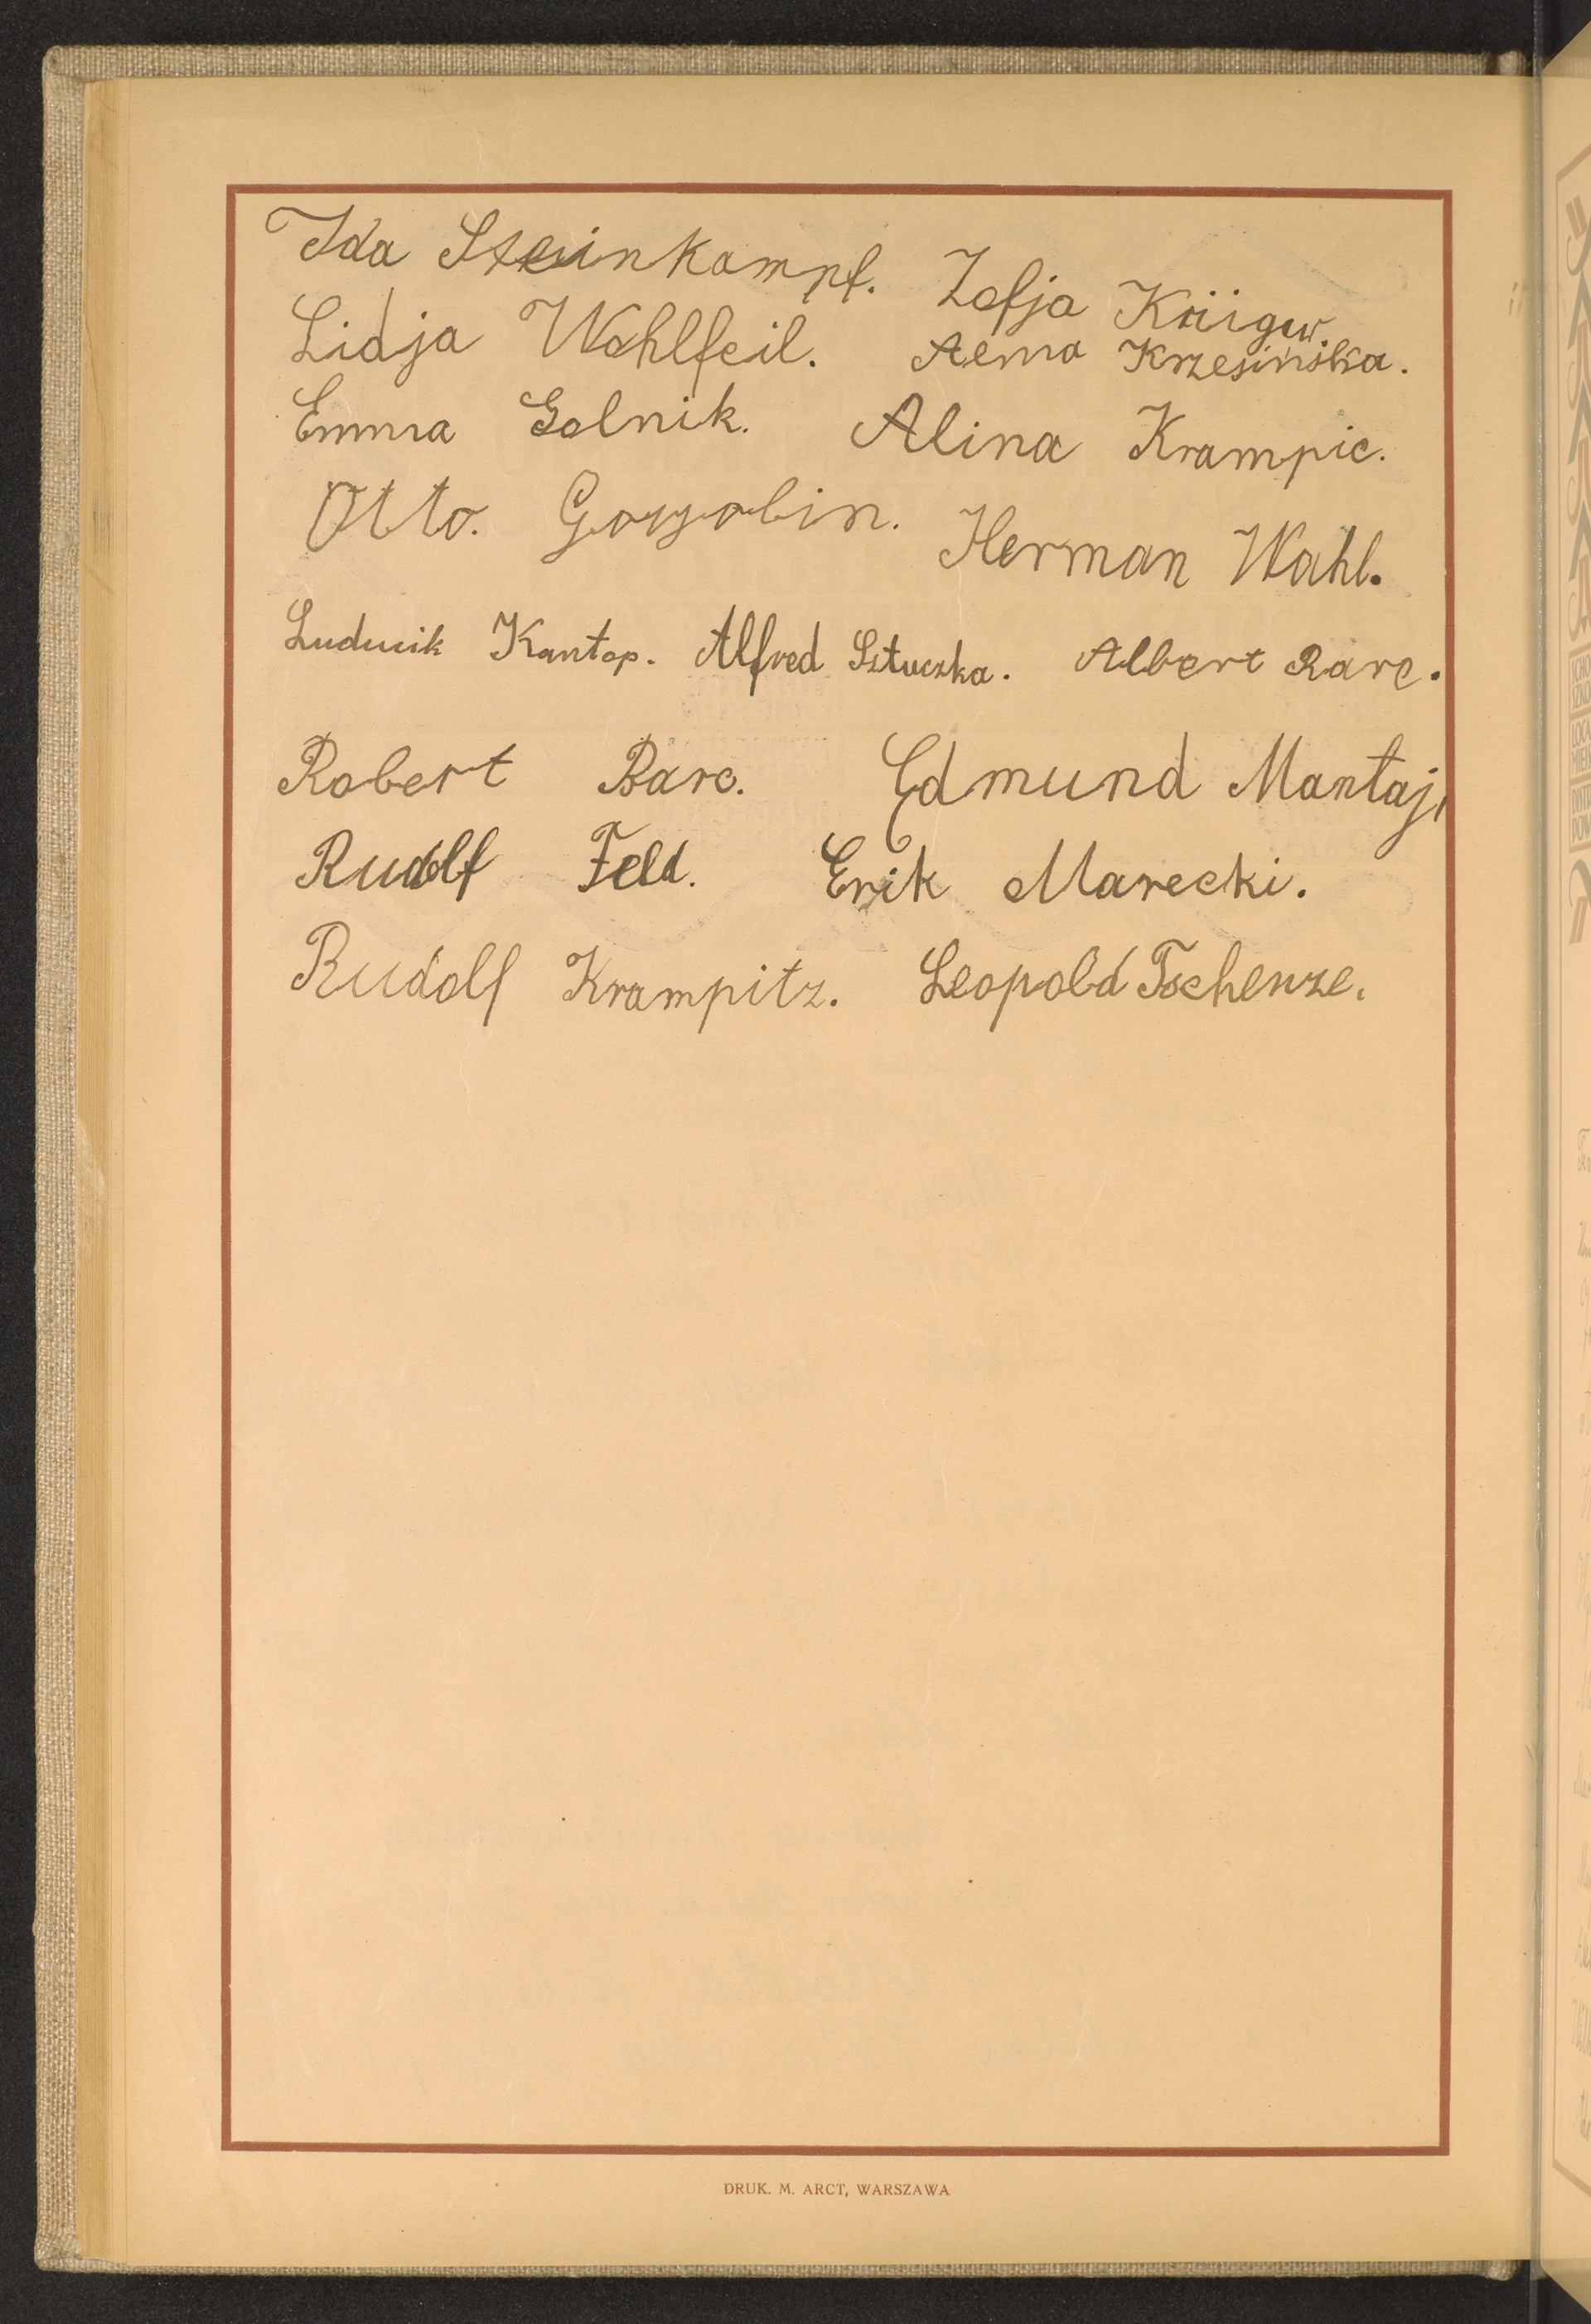 Ida Steinkampf. Zofja Krüger
Lidja Wohlfeil. Aema Krzesińska.
Emma Golnik. Alina Krampic.
Otto. Herman Wahl.
Ludwik Kantop. Alfred Sztuczka. Albert Barc.
Robert Barc. Edmund Mantaj,
Rudolf Feld. Erik Marecki.
Rudolf Krampitz. Leopold
DRUK. M. ARCT, WARSZAWA